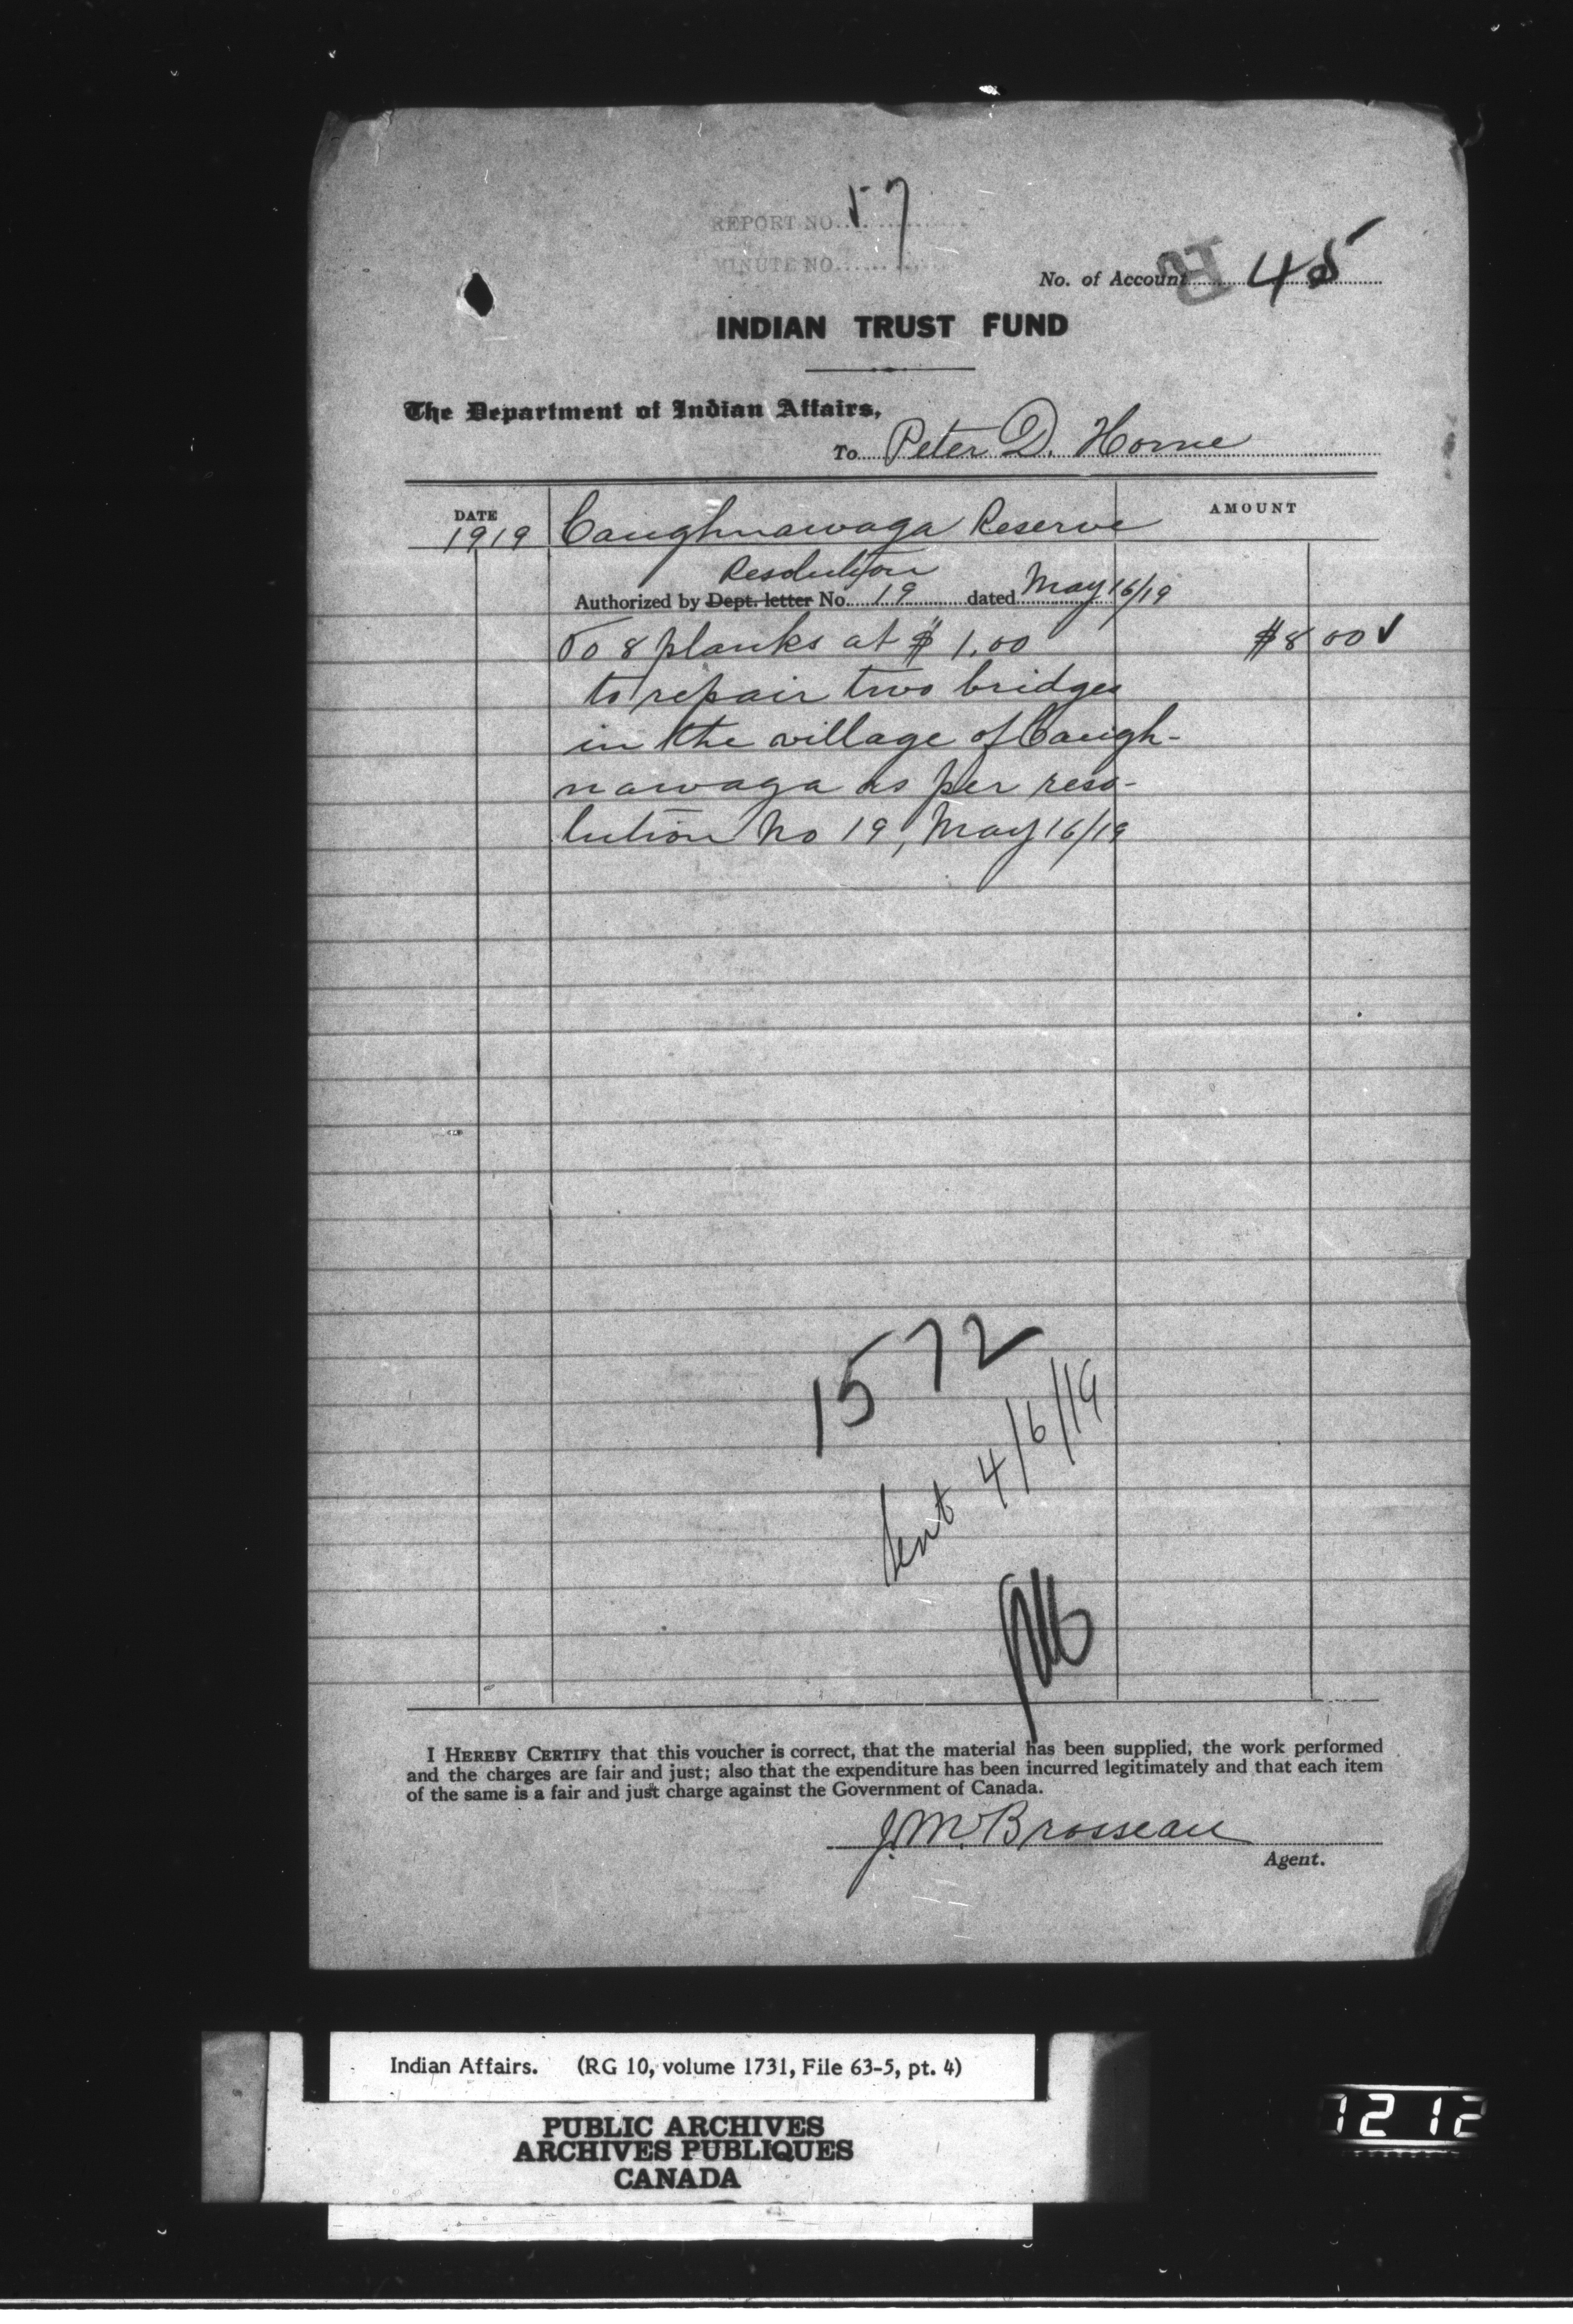 REPORT NO. 57
MINUTE NO.
No. of Account 45
INDIAN TRUST FUND
The Department of Indian Affairs,
To Peter D. Horne
DATE
AMOUNT
1919 Caughnawaga Reserve
Resolution
Authorized by Dept. letter No. 19 dated May 16/19
To 8 planks at $1.00 $8 00 ✓
to repair two bridges
in the village of Caugh-
nawaga as per reso-
lution No 19, May 16/19
1572
Sent 4/6/19
I HEREBY CERTIFY that this voucher is correct, that the material has been supplied, the work performed
and the charges are fair and just; also that the expenditure has been incurred legitimately and that each item
of the same is a fair and just charge against the Government of Canada.
J. M. Brosseau
Agent.
Indian Affairs. (RG 10, volume 1731, File 63-5, pt. 4)
PUBLIC ARCHIVES
ARCHIVES PUBLIQUES
CANADA
1212